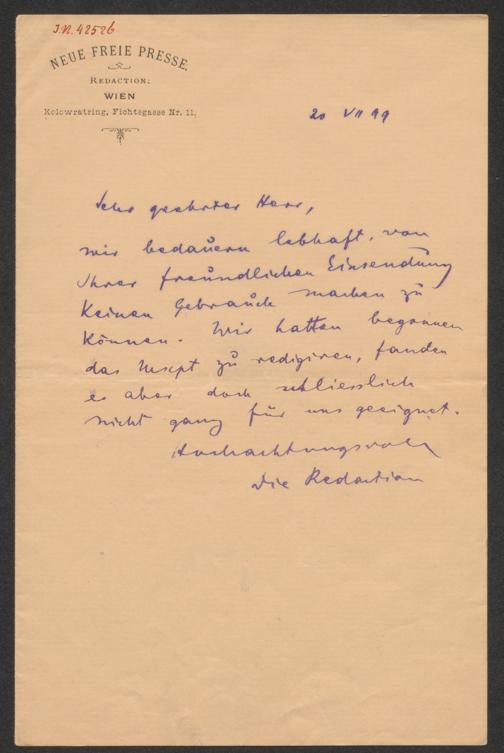 J.N. 42526
NEUE FREIE PRESSE.
REDACTION:
WIEN
Kolowratring, Fichtegasse Nr. 11.
20 VII 99
Sehr geehrter Herr,
wir bedauern lebhaft, von
Ihrer freundlichen Einsendung
keinen Gebrauch machen zu
können. Wir hatten begonnen
das Mscpt zu redigiren, fanden
es aber doch schliesslich
nicht ganz für uns geeignet.
Hochachtungsvoll
Die Redaction